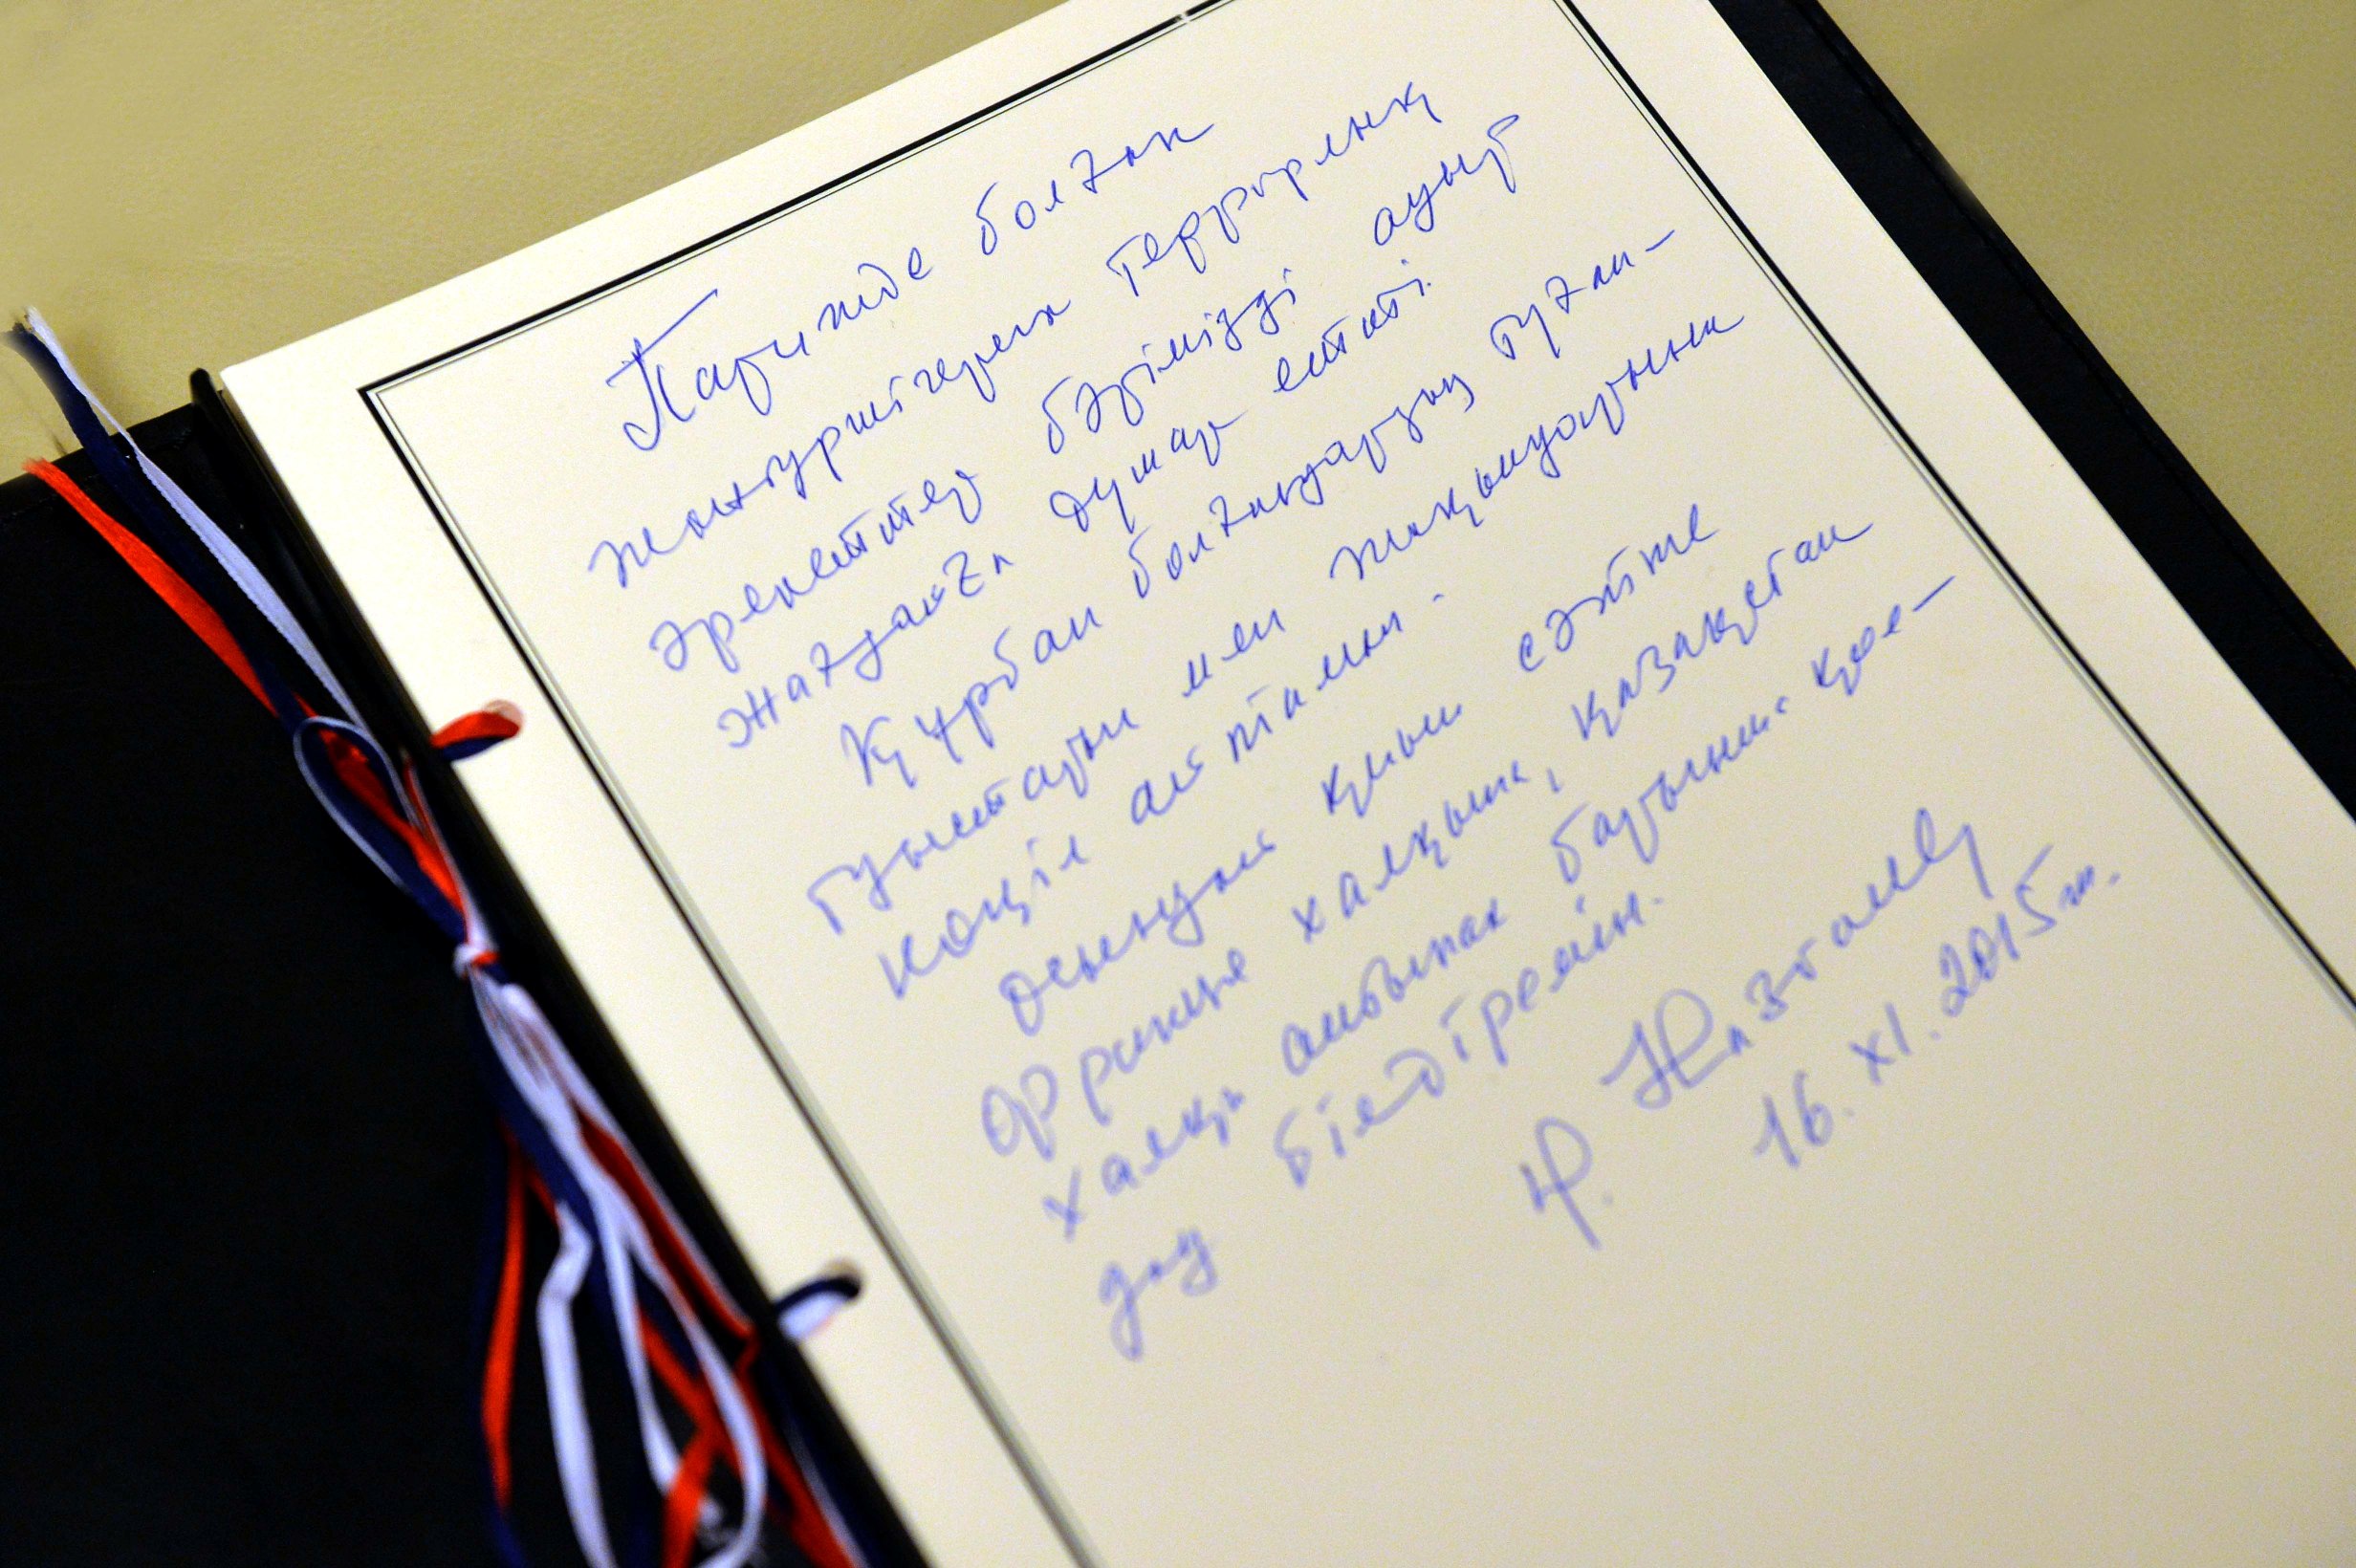 Парижде болған
жантүршігерлік террорлық
әрекеттер бәрімізді ауыр
жағдайға душар еттті.
Құрбан болғандардың туған-
туыстары мен жақындарына
көңіл айтамын.
Осындай қиын сәтте
Франция халқына, Қазақстан
халқы атынан барынша қол-
дау білдіремін.
Н. Назарбаев
16.XI.2015ж.